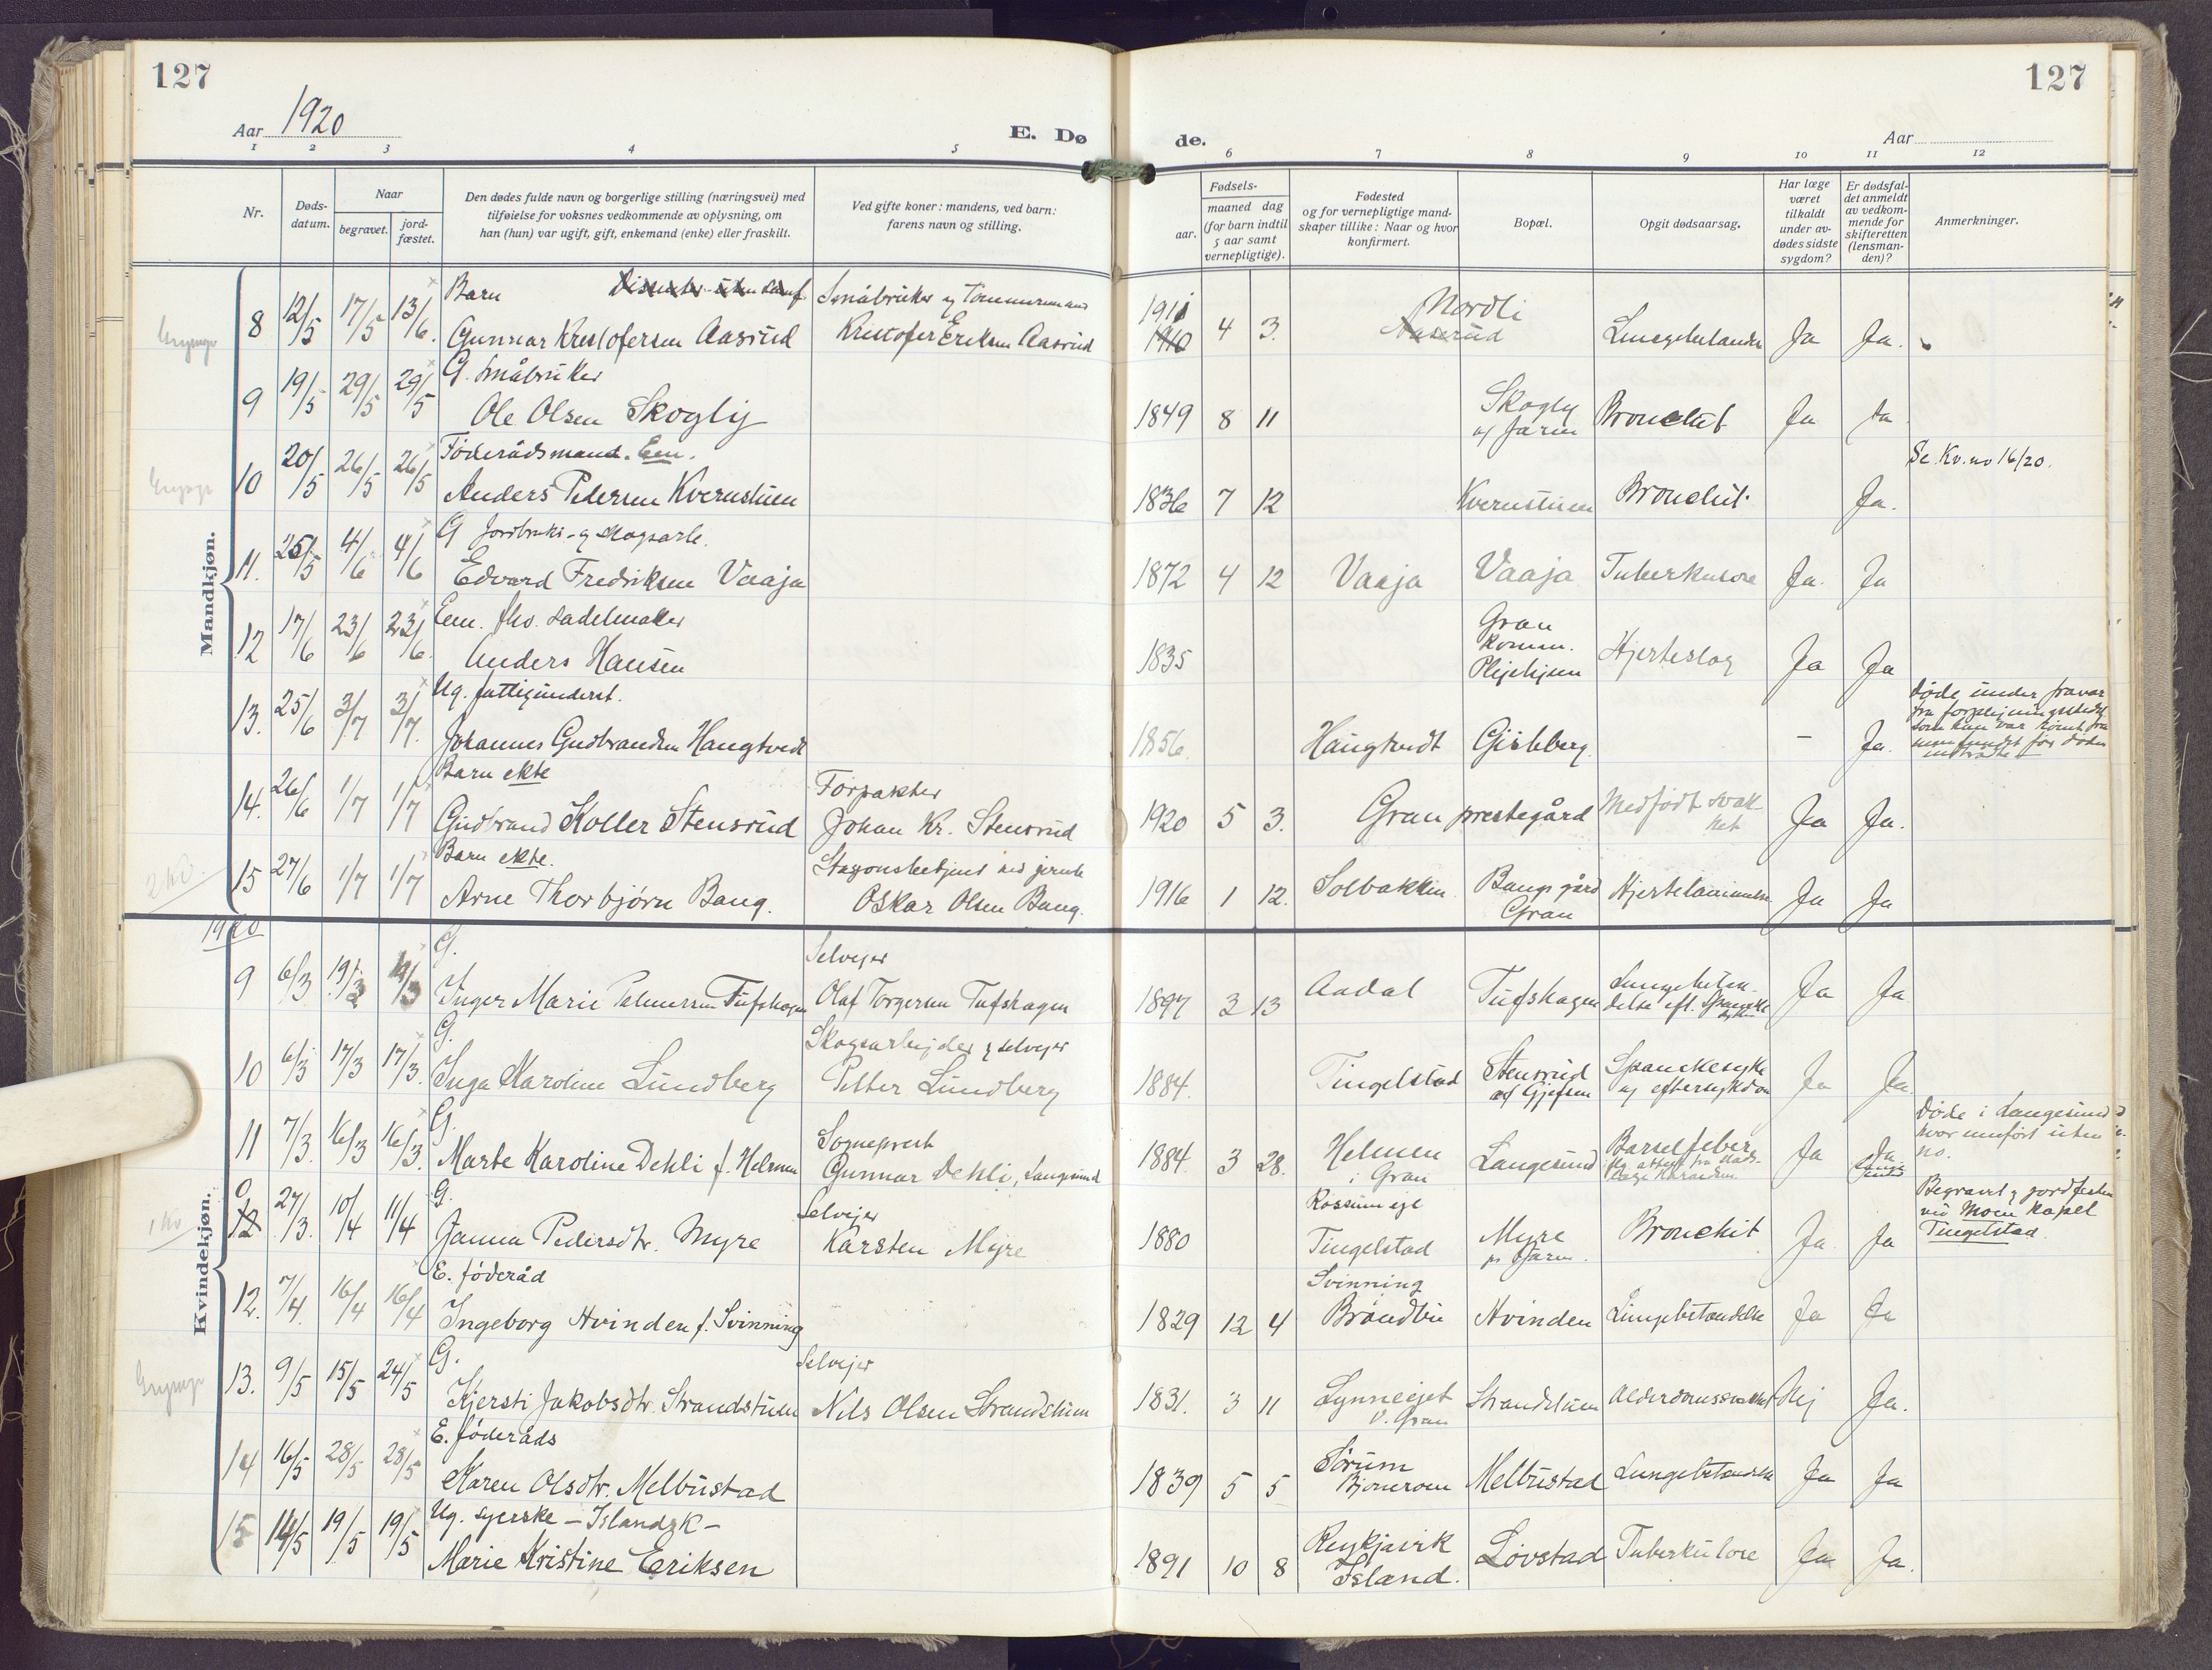 127
127
Aar 1920
E. Dø
de.
Aar
1 2 3 4 5 6 7 8 9 10 11 12
Nr.
Døds-
datum.
Naar
begravet.
jord-
fæstet.
Den dødes fulde navn og borgerlige stilling (næringsvei) med
tilføielse for voksnes vedkommende av oplysning, om
han (hun) var ugift, gift, enkemand (enke) eller fraskilt.
Ved gifte koner: mandens, ved barn:
farens navn og stilling.
Fødsels-
aar.
maaned dag
(for barn indtil
5 aar samt
vernepligtige).
Fødested
og for vernepligtige mand-
skaper tillike: Naar og hvor
konfirmert.
Bopæl.
Opgit dødsaarsag.
Har læge
været
tilkaldt
under av-
dødes sidste
sygdom?
Er dødsfal-
det anmeldt
av vedkom-
mende for
skifteretten
(lensman-
den)?
Anmerkninger.
Mandkjøn.
Barn
Småbruker og Tømmermand
1911 Nordli
8 12/5 17/5 13/6. Gunnar Kristofersen Aasrud Kristofer Eriksen Aasrud 1910 4 3. Aaserud Ja Ja.
G. Småbruker
9 19/5 29/5 29/5 Ole Olsen Skogly 1849 8 11 Skogly Bronchit Ja Ja
Jaren
Føderådsmand. Em.
Se Kv. no 16/20.
10 20/5 26/5 26/5 Anders Pedersen Kvernstuen 1836 7 12 Kvernstuen Bronchit. Ja.
G Jordbruks- og skogsarb.
11. 25/5 4/6 4/6 Edvard Fredriksen Vaaja 1872 4 12 Vaaja Vaaja Tuberkulose Ja. Ja
Em. fhv. sadelmaker
Gran
komm.
12 17/6 23/6 23/6. Anders Hansen 1835 Plejehjem Hjerteslag Ja Ja
Ug. fattigunderst.
13. 25/6 3/7 3/7. Johannes Gudbrandsen Haugtvedt 1856 Haugtvedt - Ja.
Døde under fravær
fra forplejningsstedet
som han var rømt fra
Barn ekte
Forpakter
14. 26/6 1/7 1/7 Gudbrand Koller Stensrud Johan Kr. Stensrud 1920 5 3. Gran prestegård Medfødt svak-
het Ja Ja.
2 Kv.
Barn ekte.
15 27/6 1/7 1/7 Arne Thorbjørn Bang. Oskar Olsen Bang. 1916 1 12. Solbakken Bangs gård
Gran Ja Ja
1920
Kvindekjøn.
G.
Selvejer
9 6/3 19/3 19/3 Inger Marie Tufshagen Olaf Torgersen Tufshagen 1897 3 13 Aadal Tufshagen Lungebeten-
delse eft. Spanske Ja Ja
G.
Skogsarbejder og selvejer
10 6/3 17/3 17/3. Inga Karoline Lundberg Petter Lundberg 1884. Tingelstad Stensrud
Spanskesyke
Ja Ja.
G.
Sogneprest
11 7/3. 16/3 16/3. Marte Karoline Dehli f. Helmen Gunnar Dehli, Langesund 1884. 3 28. Helmen
i Gran Langesund Barselfeber
Ja Ja
Døde i Langesund
hvor innført uten
no.
1 Kv
G.
Selvejer
12 27/3. 10/4 11/4 Janna Pedersdtr. Myre Karsten Myre 1880 Tingelstad Myre
Bronchit Ja. Ja
Begravet og jordfestet
ved Moen Kapel
Tingelstad.
E. føderåd
12. 7/4. 16/4 16/4 Ingeborg Hvinden f. Svinning 1829 12 4 Svinning
Brandbu Hvinden Lungebetændelse Ja Ja
G.
Selvejer
13. 9/5 15/5 24/5 Kjersti Jakobsdtr. Strandstuen Nils Olsen Strandstuen 1831. 3 11 Lynneejet
V. Gran Strandstuen Alderdomssvakhet Nej Ja.
E. føderåds
14 16/5 28/5 28/5 Karen Olsdtr. Melbustad 1839 5 5 Sørum
Bjoneroen Melbustad Lungebetændelse Ja Ja
Ug. syerske - Islandsk -
15 14/5 19/5 19/5 Marie Kristine Eeriksen 1891 10 8 Reykjavik
Island. Lovstad Tuberkulose Ja Ja.